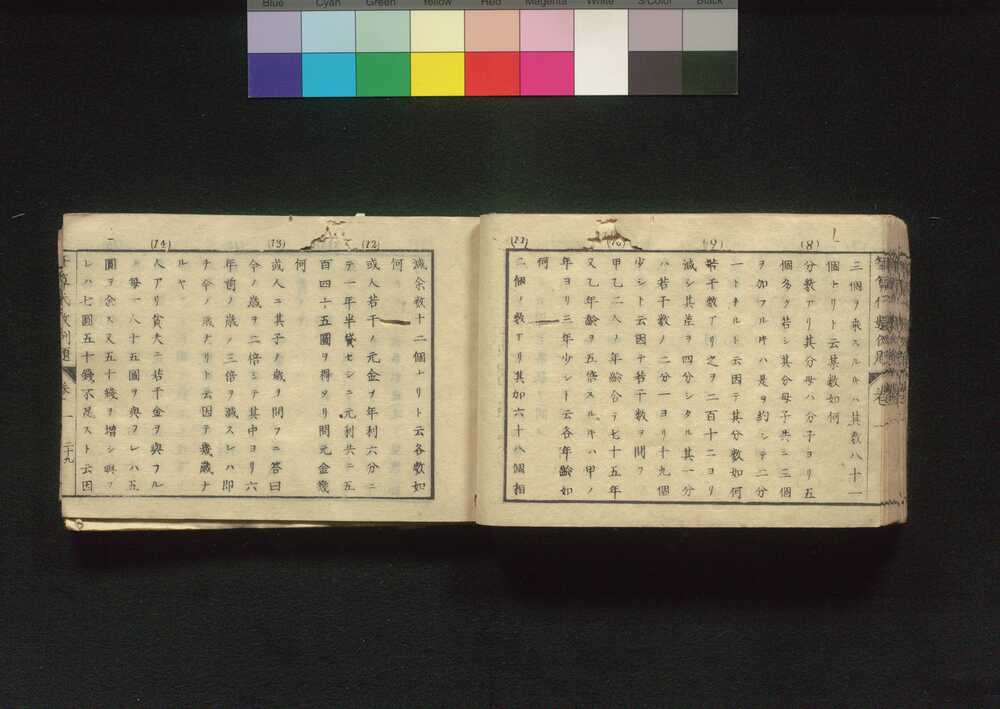 Blue Cyan Green Yellow Red Magenta White 3/Color Black
(8)
三個ヲ乗スルキハ其数八十一
個トリト云其数如何
分数アリ其分母ハ分子ヨリ五
個多ク若シ其分母子共ニ三個
ヲ加フル件ハ是ヲ約シテ二分
一トナルト云因テ其分数如何
(9)
若干数アリ之ヲ二百十二ヨリ
減シ其差ヲ四分シタル其一分
ハ若干数ノ二分一ヨリ十九個
少シト云因テ若干数ヲ問フ
(10)
甲乙二人ノ年齢合テ七十五年
又乙年齢ヲ五倍スルキハ甲ノ
年ヨリ三年少シト云各年齢如
何
(11)
二個ノ数アリ其和六十八個相
減余数十二個ナリト云各数如
何
(12)
或人若干ノ元金ヲ年利六分ニ
テ一年半貸セシニ元利共ニ五
百四十五圓ヲ得タリ問元金幾
何
(13)
或人ニ其子ノ歳ヲ問フニ答曰
今ノ歳ヲ二倍シテ其中ヨリ六
年前ノ歳ノ三倍ヲ減スレハ即
チ今ノ歳ナリト云因テ幾歳ナ
ルヤ
(14)
人アリ貧夫ニ若干金ヲ與フル
ニ毎一人十五圓ヲ與フレハ五
圓ヲ余ス又五十錢ヲ増シ與フ
レハ七圓五十錢不足スト云因
卷 一 二十九